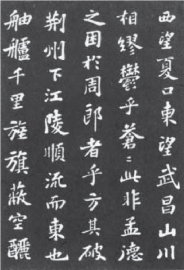 西望夏口東望武昌山川
相繆鬱乎蒼〻此非孟德
之困於周郎者乎方其破
荊州下江陵順流而東也
舳艫千里旌旗蔽空釃